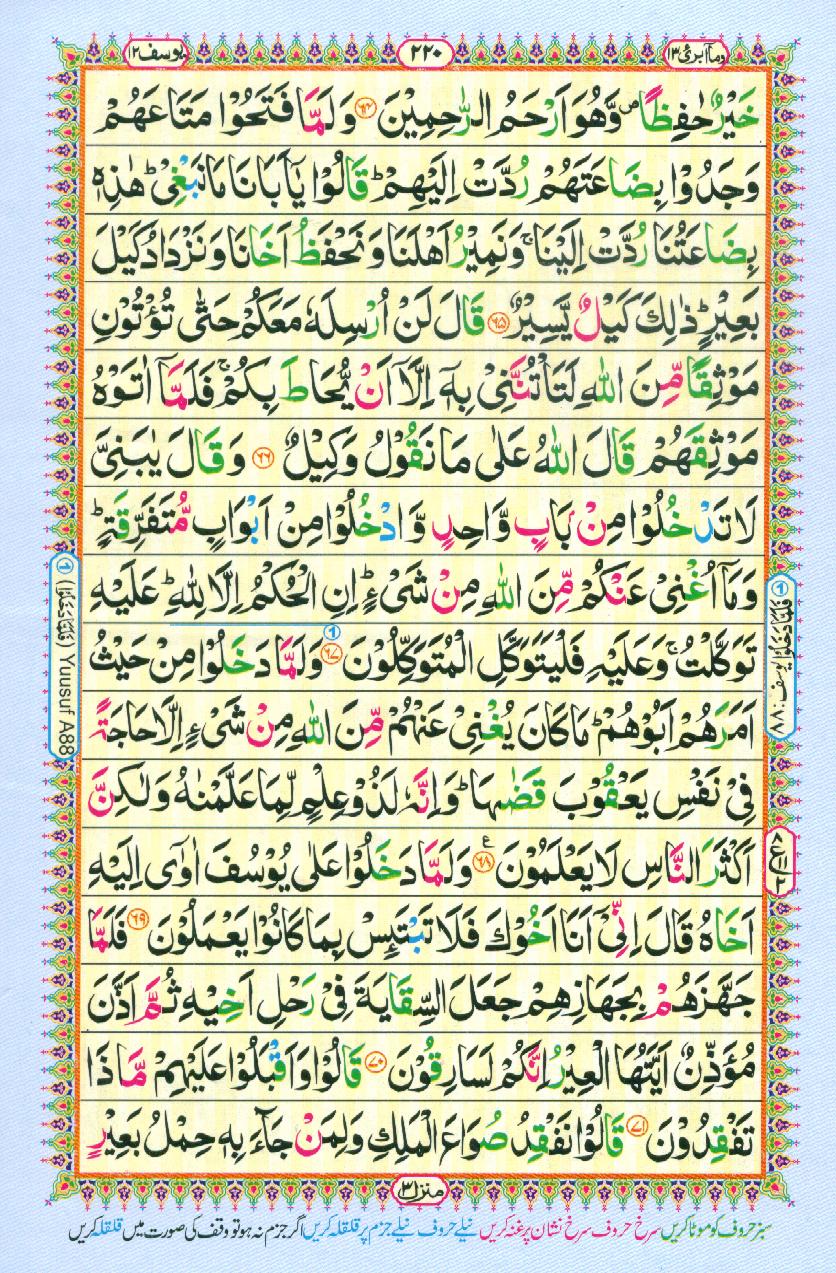 وما ابرئ ١٣
٢٢٠
يوسف ١٢
خَيْرٌ حٰفِظًا ۪ وَّهُوَ اَرْحَمُ الرّٰحِمِيْنَ ﴿۶۴﴾ وَلَمَّا فَتَحُوْا مَتَاعَهُمْ
وَجَدُوْا بِضَاعَتَهُمْ رُدَّتْ اِلَيْهِمْ ؕ قَالُوْا يٰۤاَبَانَا مَا نَبْغِيْ ؕ هٰذِهٖ
بِضَاعَتُنَا رُدَّتْ اِلَيْنَا ۚ وَنَمِيْرُ اَهْلَنَا وَنَحْفَظُ اَخَانَا وَنَزْدَادُ كَيْلَ
بَعِيْرٍ ؕ ذٰلِكَ كَيْلٌ يَّسِيْرٌ ﴿۶۵﴾ قَالَ لَنْ اُرْسِلَهٗ مَعَكُمْ حَتّٰى تُؤْتُوْنِ
مَوْثِقًا مِّنَ اللّٰهِ لَتَاْتُنَّنِيْ بِهٖۤ اِلَّاۤ اَنْ يُّحَاطَ بِكُمْ ۚ فَلَمَّاۤ اٰتَوْهُ
مَوْثِقَهُمْ قَالَ اللّٰهُ عَلٰى مَا نَقُوْلُ وَكِيْلٌ ﴿۶۶﴾ وَقَالَ يٰبَنِيَّ
لَا تَدْخُلُوْا مِنْۢ بَابٍ وَّاحِدٍ وَّادْخُلُوْا مِنْ اَبْوَابٍ مُّتَفَرِّقَةٍ ؕ
وَمَاۤ اُغْنِيْ عَنْكُمْ مِّنَ اللّٰهِ مِنْ شَيْءٍ ؕ اِنِ الْحُكْمُ اِلَّا لِلّٰهِ ؕ عَلَيْهِ
تَوَكَّلْتُ ۚ وَعَلَيْهِ فَلْيَتَوَكَّلِ الْمُتَوَكِّلُوْنَ ﴿۶۷﴾ وَلَمَّا دَخَلُوْا مِنْ حَيْثُ
اَمَرَهُمْ اَبُوْهُمْ ؕ مَا كَانَ يُغْنِيْ عَنْهُمْ مِّنَ اللّٰهِ مِنْ شَيْءٍ اِلَّا حَاجَةً
فِيْ نَفْسِ يَعْقُوْبَ قَضٰىهَا ؕ وَاِنَّهٗ لَذُوْ عِلْمٍ لِّمَا عَلَّمْنٰهُ وَلٰكِنَّ
اَكْثَرَ النَّاسِ لَا يَعْلَمُوْنَ ﴿۶۸﴾ ع وَلَمَّا دَخَلُوْا عَلٰى يُوْسُفَ اٰوٰۤى اِلَيْهِ
اَخَاهُ قَالَ اِنِّيْۤ اَنَا اَخُوْكَ فَلَا تَبْتَئِسْ بِمَا كَانُوْا يَعْمَلُوْنَ ﴿۶۹﴾ فَلَمَّا
جَهَّزَهُمْ بِجَهَازِهِمْ جَعَلَ السِّقَايَةَ فِيْ رَحْلِ اَخِيْهِ ثُمَّ اَذَّنَ
مُؤَذِّنٌ اَيَّتُهَا الْعِيْرُ اِنَّكُمْ لَسَارِقُوْنَ ﴿۷۰﴾ قَالُوْا وَاَقْبَلُوْا عَلَيْهِمْ مَّاذَا
تَفْقِدُوْنَ ﴿۷۱﴾ قَالُوْا نَفْقِدُ صُوَاعَ الْمَلِكِ وَلِمَنْ جَآءَ بِهٖ حِمْلُ بَعِيْرٍ
① فلما دخلوا يوسف : ٨٨
① (فَلَمَّا دَخَلُوْا) Yousuf A88
منزل ٣
سبز حروف کو موٹا کریں سرخ حروف سرخ نشان پر غنہ کریں نیلے حروف نیلے جزم پر قلقلہ کریں اگر جزم نہ ہو تو وقف کی صورت میں قلقلہ کریں